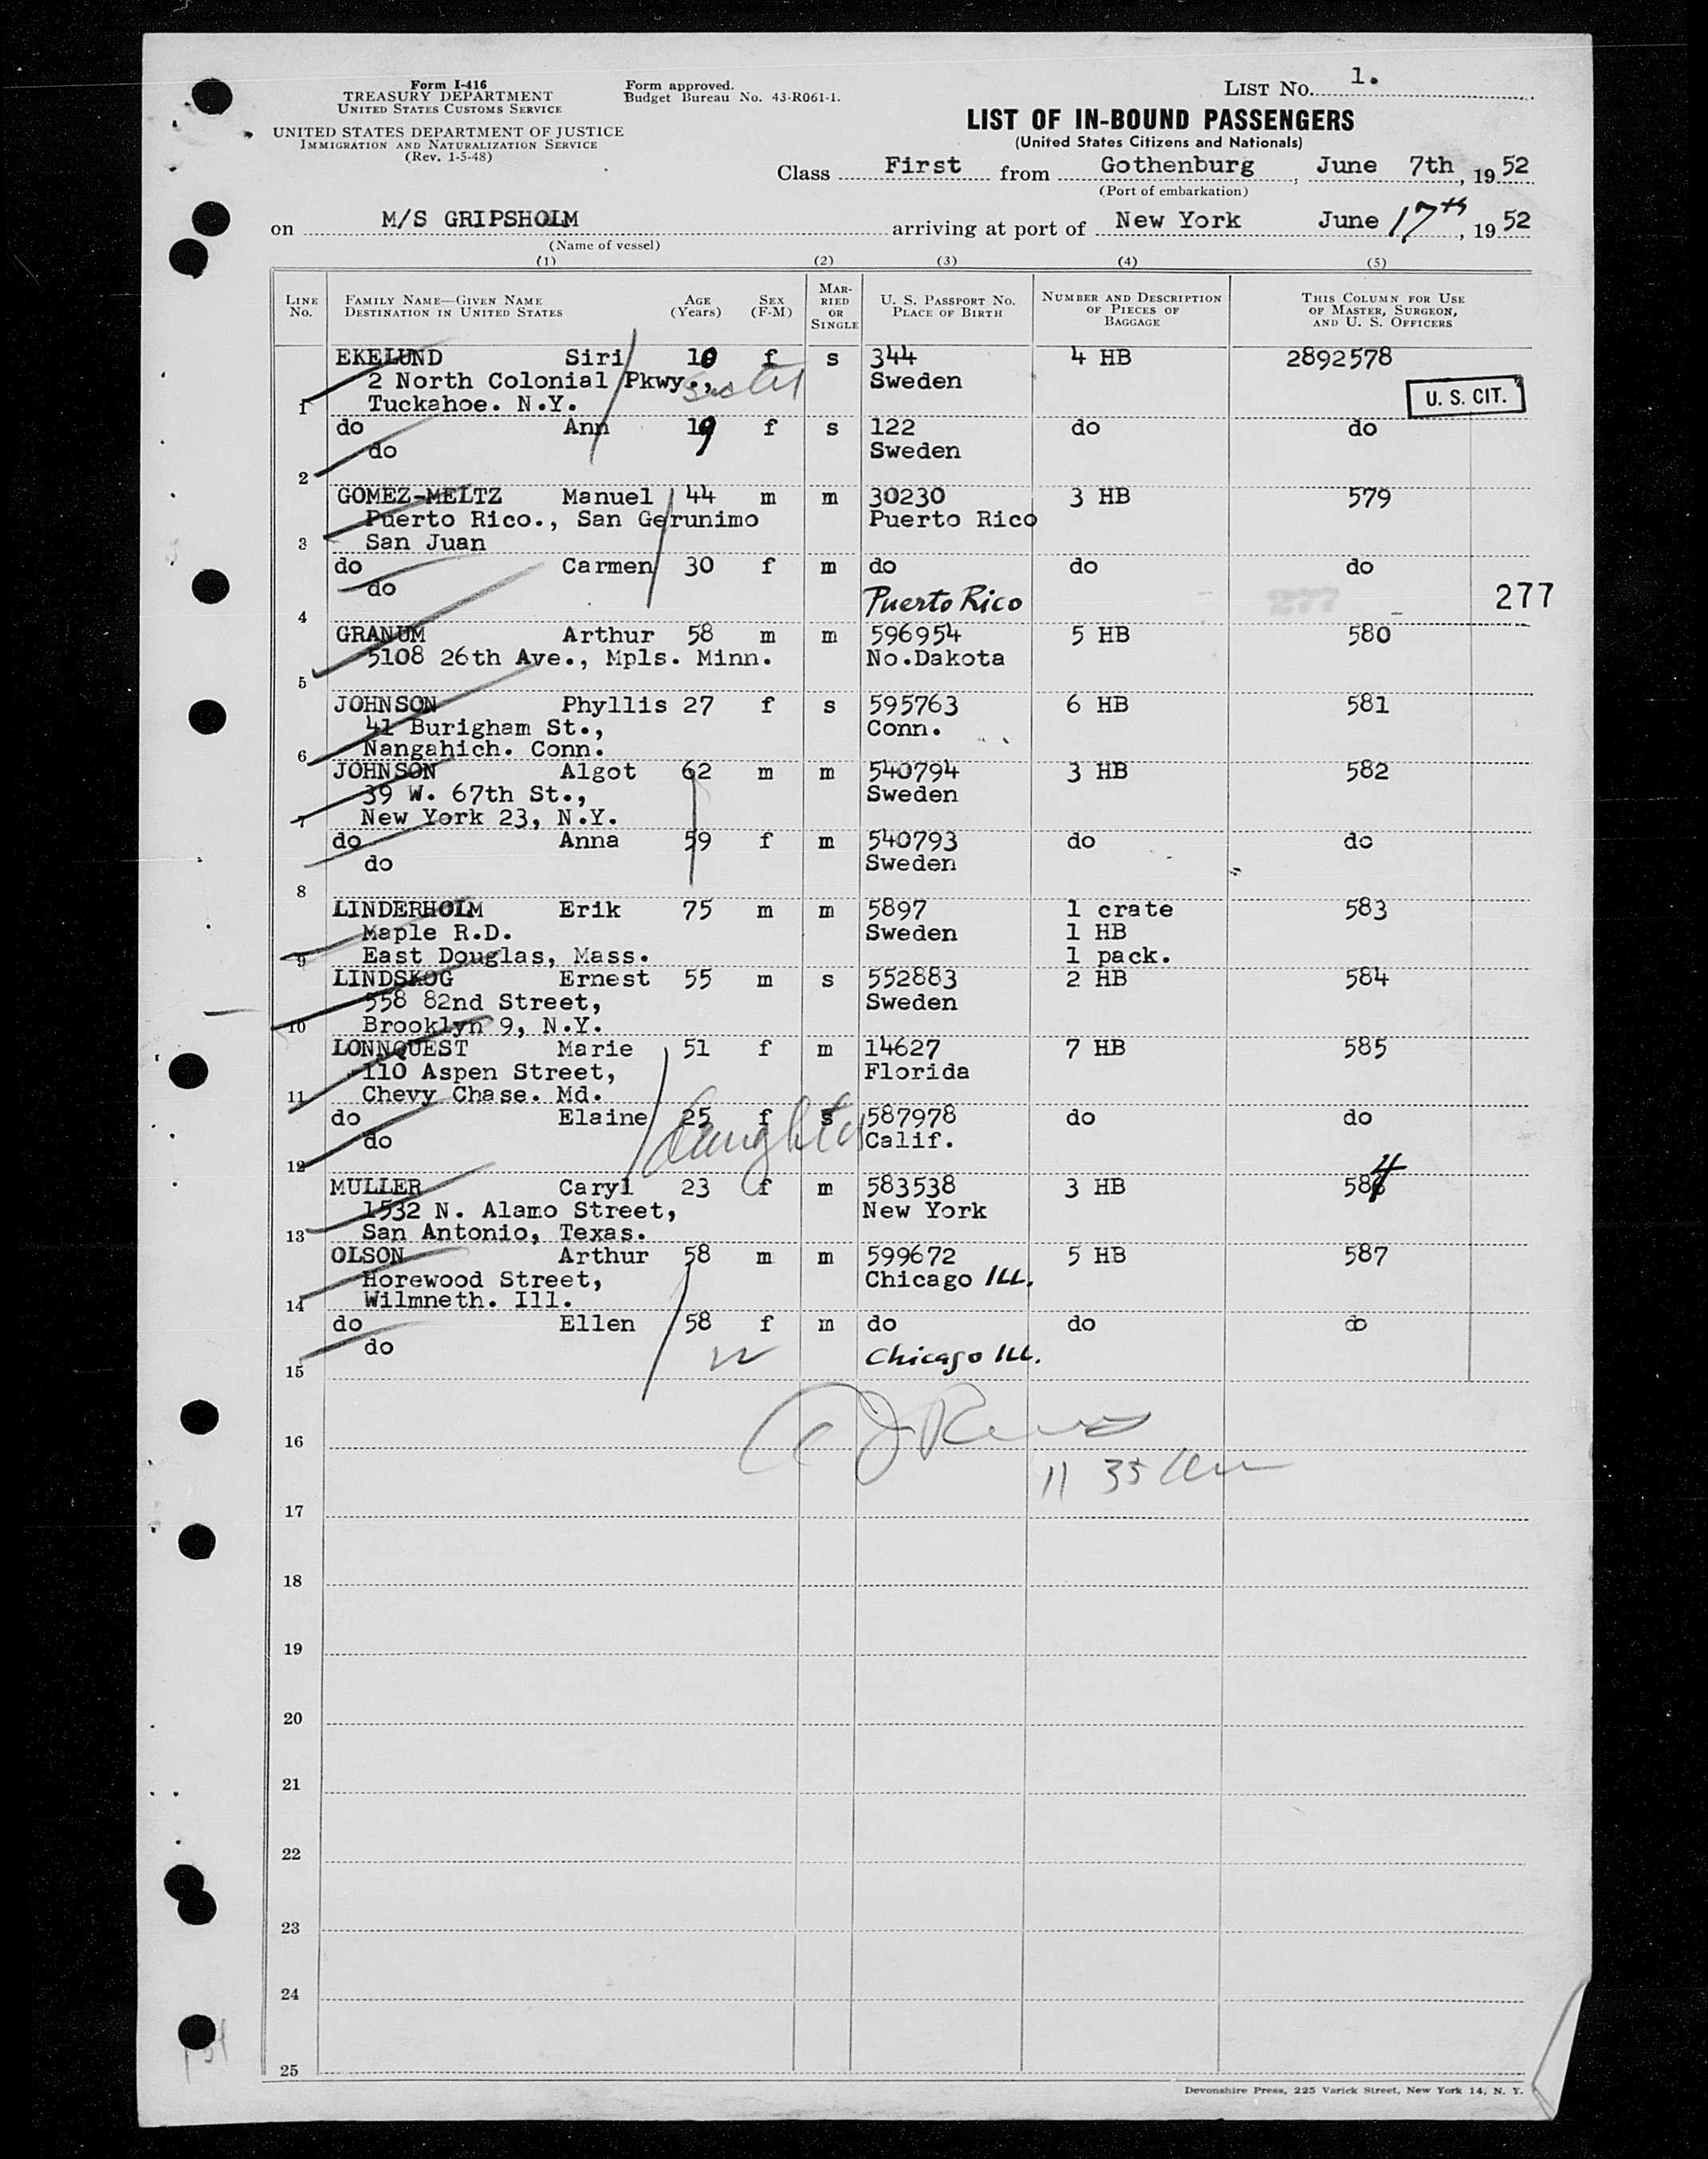 Form I-416
TREASURY DEPARTMENT
UNITED STATES CUSTOMS SERVICE
UNITED STATES DEPARTMENT OF JUSTICE
IMMIGRATION AND NATURALIZATION SERVICE
(Rev. 1-5-48)
Form approved.
Budget Bureau No. 43-R061-1.
LIST NO. 1.
LIST OF IN-BOUND PASSENGERS
(United States Citizens and Nationals)
Class First from Gothenburg, June 7th, 1952
(Port of embarkation)
on M/S GRIPSHOLM arriving at port of New York June 17th, 1952
(Name of vessel)
(1) (2) (3) (4) (5)
LINE NO. FAMILY NAME—GIVEN NAME DESTINATION IN UNITED STATES AGE (Years) SEX (F-M) MARRIED OR SINGLE U. S. PASSPORT NO. PLACE OF BIRTH NUMBER AND DESCRIPTION OF PIECES OF BAGGAGE THIS COLUMN FOR USE OF MASTER, SURGEON, AND U. S. OFFICERS
EKELUND Siri 10 f s 344 4 HB 2892578
2 North Colonial Pkwy., Sweden
1 Tuckahoe. N.Y. U. S. CIT.
do Ann 19 f s 122 do do
do Sweden
2
GOMEZ-MELTZ Manuel 44 m m 30230 3 HB 579
Puerto Rico., San Gerunimo Puerto Rico
3 San Juan
do Carmen 30 f m do do do
do Puerto Rico 277
4
GRANUM Arthur 58 m m 596954 5 HB 580
5108 26th Ave., Mpls. Minn. No.Dakota
5
JOHNSON Phyllis 27 f s 595763 6 HB 581
41 Burigham St., Conn.
6 Nangahich. Conn.
JOHNSON Algot 62 m m 540794 3 HB 582
39 W. 67th St., Sweden
7 New York 23, N.Y.
do Anna 59 f m 540793 do do
do Sweden
8
LINDERHOLM Erik 75 m m 5897 1 crate 583
Maple R.D. Sweden 1 HB
9 East Douglas, Mass. 1 pack.
LINDSKOG Ernest 55 m s 552883 2 HB 584
558 82nd Street, Sweden
10 Brooklyn 9, N.Y.
LONNQUEST Marie 51 f m 14627 7 HB 585
110 Aspen Street, Florida
11 Chevy Chase. Md.
do Elaine 25 f s 587978 do do
do daughter Calif.
12
MULLER Caryl 23 f m 583538 3 HB 586 4
1532 N. Alamo Street, New York
13 San Antonio, Texas.
OLSON Arthur 58 m m 599672 5 HB 587
Horewood Street, Chicago Ill.
14 Wilmneth. Ill.
do Ellen 58 f m do do do
do Chicago Ill.
15
16
11 35
17
18
19
20
21
22
23
24
25
Devonshire Press, 225 Varick Street, New York 14, N. Y.